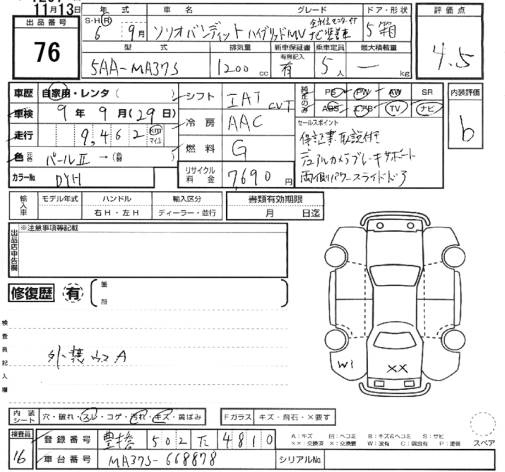 11月13日
出品番号
76
年式 車名 グレード ドア・形状
S・H・R 6年 9月 ソリオバンディット ハイブリッドMV 全方位モニター付ナビ装着車 5箱
型式 排気量 新車保証書 乗車定員 最大積載量
有無記入
5AA-MA37S 1200cc 有 5人 ― kg
評価点
4.5
車歴 自家用・レンタ( )
車検 9年 9月(29日)
走行 9,462 km マイル
色(元色) パールⅡ →( 色)
カラーNo. DYH
シフト IAT CVT
冷房 AAC
燃料 G
リサイクル料金 7,690円
純正のみ PS PW AW SR
ABS エアB TV ナビ
セールスポイント
保証書・取説付
デュアルカメラブレーキサポート
両側パワースライドドア
内装評価
b
輸入車 モデル年式 ハンドル 輸入区分
年 右H・左H ディーラー・並行
書類有効期限
月 日迄
出品店申告欄
※注意事項等記載
修復歴 有 箇所
検査員記入欄
外装小A
W1
XX
内装シート 穴・破れ・スレ・コゲ・汚れ・キズ・黄ばみ
Fガラス キズ・飛石・×要す
スペア
検査員
16
登録番号 豊橋 502 て 4810
車台番号 MA37S-668878
シリアルNo.
A:キズ U:ヘコミ B:キズ&ヘコミ S:サビ